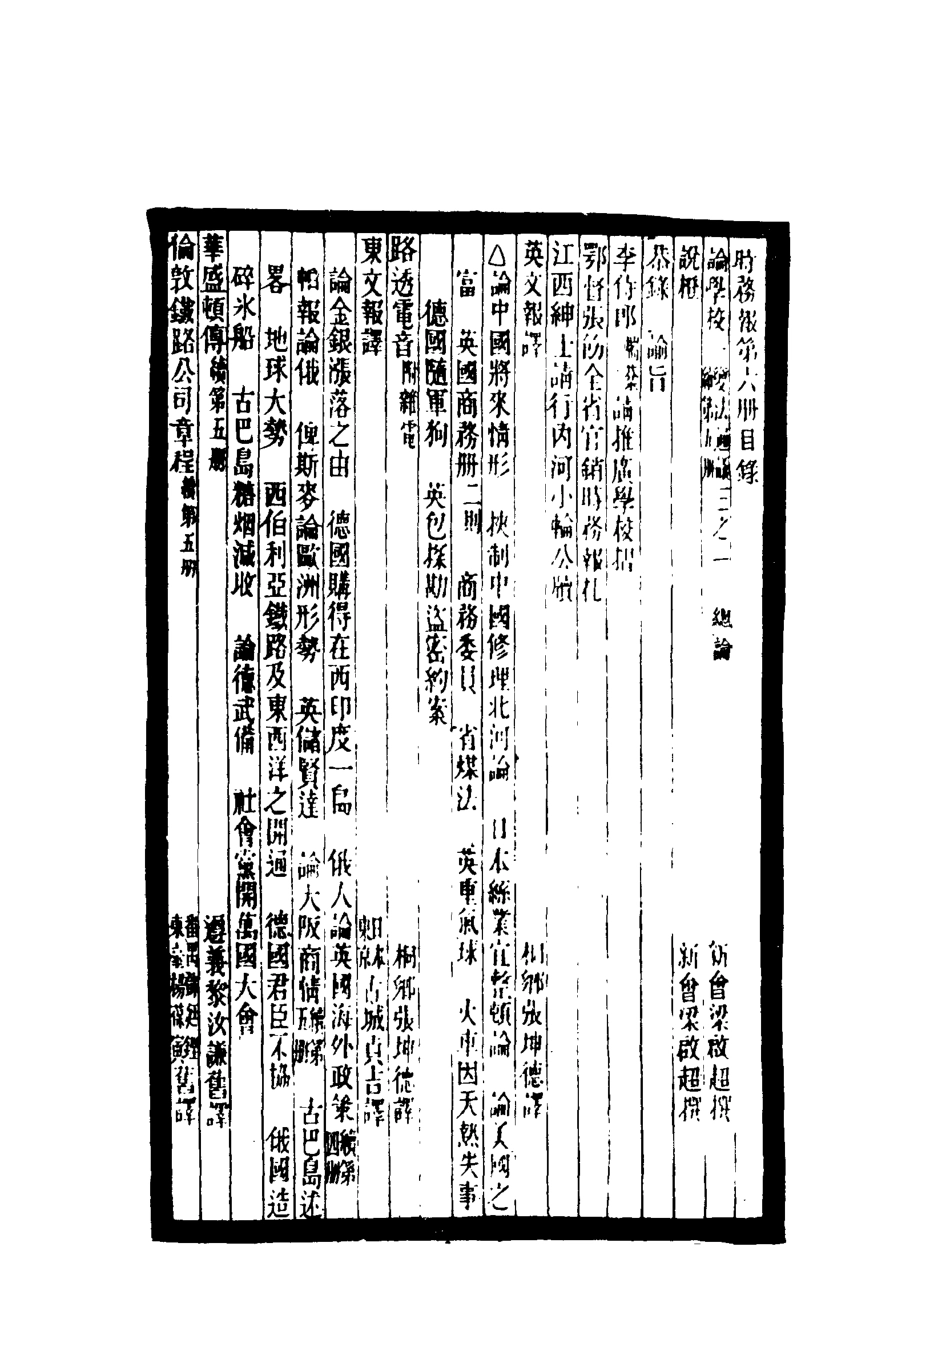 時務報第六册目錄
論學校一 變法通議三之一 總論 續第五册 新會梁啟超撰
說橙 新會梁啟超撰
恭錄 諭旨
李侍郎端棻請推廣學校摺
鄂督張飭全省官銷時務報札
江西紳士請行內河小輪公牘
英文報譯 桐鄉張坤德譯
△論中國將來情形 挾制中國修理北河論 日本絲業宜整頓論 論美國之
富 英國商務册二則 商務委員 省煤法 英車氣球 火車因天熱失事
德國隨軍狗 英包探勘盜密約案
路透電音附雜電 桐鄉張坤德譯
東文報譯 日本東京古城貞吉譯
論金銀漲落之由 德國購得在西印度一島 俄人論英國海外政策續第四册
帕報論俄 俾斯麥論歐洲形勢 英儲賢達 論大阪商情續第五册 古巴島述
畧 地球大勢 西伯利亞鐵路及東西洋之開通 德國君臣不協 俄國造
碎氷船 古巴島糖烟減收 論德武備 社會黨開萬國大會
華盛頓傳續第五册 遵義黎汝謙舊譯
倫敦鐵路公司章程續第五册 番禺 東 楊 舊譯